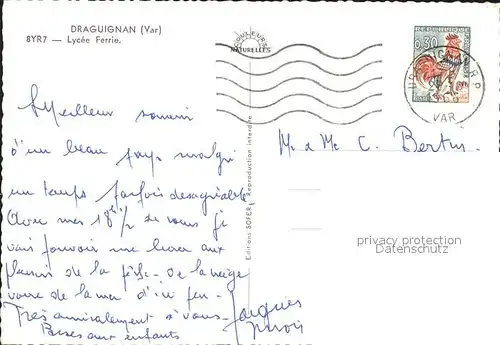 DRAGUIGNAN (Var)
8YR7 — Lycée Ferrie.
COULEURS
NATURELLES
REPUBLIQUE FRANCAISE
0,30
DRAGUIGNAN R.P.
VAR
Meilleur souvenir
d'un beau pays malgré
un temps parfois desagréable
Avec mes 18 de vous je
vais pouvoir me livrer aux
plaisirs de la pêche - de la neige
voire de la mer d'ici peu -
Très amicalement à vous -
Jacques
Bises aux enfants
M & Me C. Bertin.
Editions SOFER Reproduction interdite
privacy protection
Datenschutz